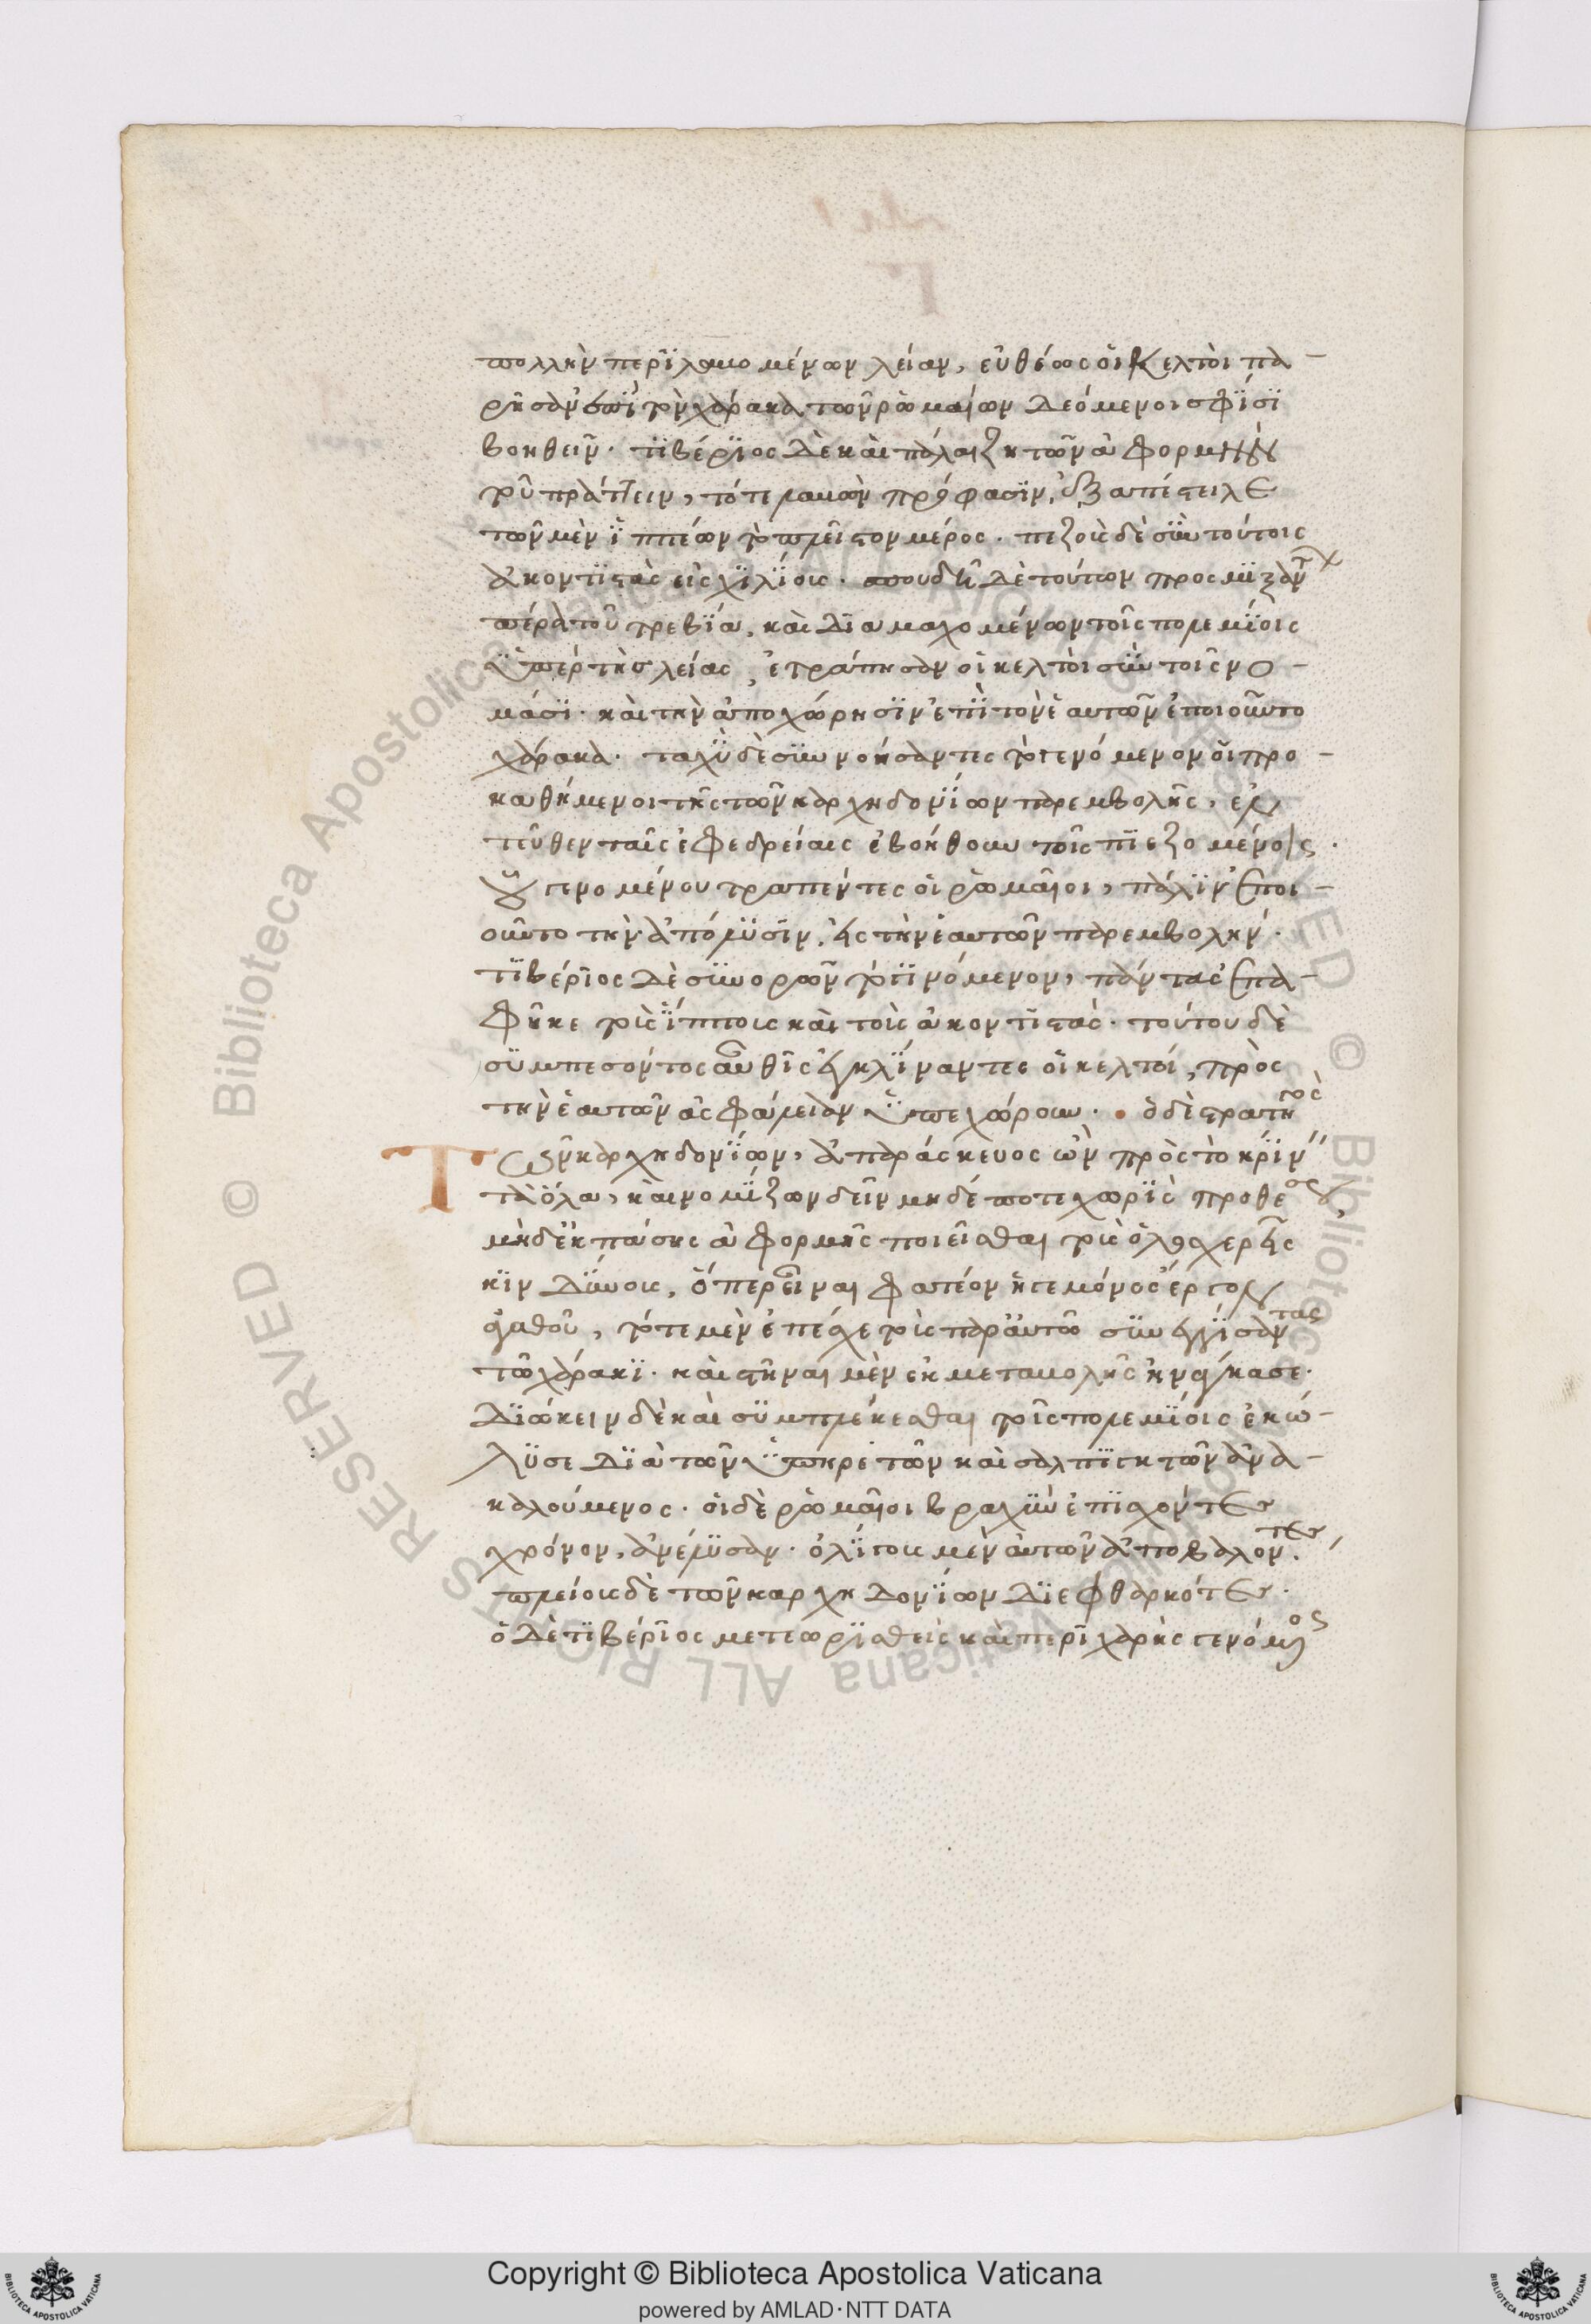 πολλὴν περϊλαμομένων λείαν, εὐθέως οἱ κελτοὶ πα-
ρῆσαν ἐπὶ τὸν χάρακα τῶν ῥωμαίων δεόμενοι σφΐσϊ
βοηθεῖν· τϊβέριος δὲ καὶ πάλαι ζητῶν ἀφορμὴν
τοῦ πράττειν, τότε λαμὼν πρόφασϊν, ἐξαπέστειλε
τῶν μὲν ϊππέων τὸ πλεῖστον μέρος· πεζοὺς δὲ σὺν τούτοις
ἀκοντϊστὰς εἰς χϊλΐους· σπουδῇ δὲ τούτων προσμϊξάντων
πέρα τοῦ τρεβΐα, καὶ δϊαμαχομένων τοῖς πολεμΐοις
ὑπὲρ τῆς λείας, ἐτράπησαν οἱ κελτοὶ σὺν τοῖς νο-
μάσϊ· καὶ τὴν ἀποχώρησϊν ἐπϊ τὸν ἑαυτῶν ἐποιοῦντο
χάρακα· ταχὺ δὲ συννοήσαντες τὸ γενόμενον οἱ προ-
καθήμενοι τῆς τῶν καρχηδονΐων παρεμβολῆς, ἐν
τεῦθεν ταῖς ἐφεδρείαις ἐβοήθουν τοῖς πϊεζομένοις·
οὗ γενομένου τραπέντες οἱ ῥωμαῖοι, πάλϊν ἐποι-
οῦντο τὴν ἀπόλυσϊν, εἰς τὴν ἑαυτῶν παρεμβολήν·
τϊβέριος δὲ συνορῶν τὸ γϊνόμενον, πάντας ἐπα-
φῆκε τοὺς ϊππους καὶ τοὺς ἀκοντϊστάς· τούτου δὲ
συμπεσόντος αὖθϊς ἐγκλΐναντες οἱ κελτοί, πρὸς
τὴν ἑαυτῶν ἀσφάλειαν ὑπεχώρουν· ὁ δὲ στρατηγὸς
Τῶν καρχηδονΐων, ἀπαράσκευος ὢν πρὸς τὸ κρΐνειν
τὰ ὅλα, καὶ νομΐζων δεῖν μηδέποτε χωρϊς προθέσεως,
μηδ' ἐκ πάσης ἀφορμῆς ποιεῖσθαι τοὺς ὁλοσχερεῖς
κϊνδύνους, ὅπερ εἶναι φατέον ἡγεμόνος ἔργον
ἀγαθοῦ, τότε μὲν ἐπέσχε τοὺς παρ' αὐτοῦ συνεγγΐσαντας
τῷ χάρακϊ· καὶ στῆναι μὲν ἐκ μεταμολῆς ἠνάγκασε·
δϊώκειν δὲ καὶ συμπλέκεσθαι τοῖς πολεμΐοις ἐκώ-
λυσε δϊὰ τῶν ὑπηρετῶν καὶ σαλπϊγκτῶν ἀνα-
καλούμενος· οἱ δὲ ῥωμαῖοι βραχὺν ἐπϊσχόντες
χρόνον, ἀνέλυσαν· ὀλΐγους μὲν αὐτῶν ἀποβαλόντες·
πλείους δὲ τῶν καρχηδονΐων δϊεφθαρκότες·
ὁ δὲ τϊβέριος μετεωρϊσθεὶς καὶ περϊχαρὴς γενόμενος
Copyright © Biblioteca Apostolica Vaticana
powered by AMLAD·NTT DATA